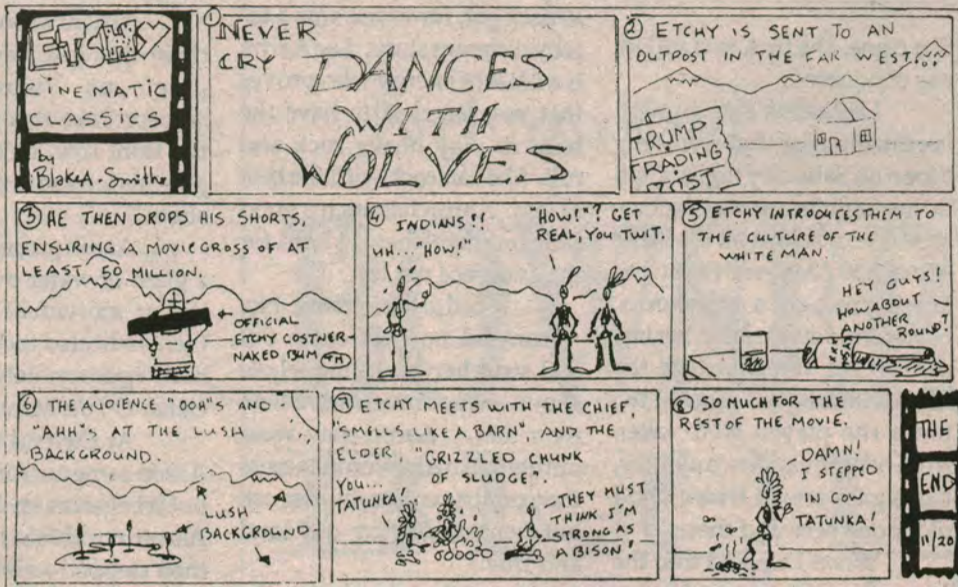 ETCHY
CINEMATIC
CLASSICS
by
Blake A. Smith
①
NEVER
CRY
DANCES
WITH
WOLVES
② ETCHY IS SENT TO AN
OUTPOST IN THE FAR WEST...
TRUMP
TRADING
POST
③ HE THEN DROPS HIS SHORTS,
ENSURING A MOVIE GROSS OF AT
LEAST 50 MILLION.
OFFICIAL
ETCHY COSTNER
NAKED BUM TM
④ INDIANS!!
UH... "HOW!"
"HOW!"? GET
REAL, YOU TWIT.
⑤ ETCHY INTRODUCES THEM TO
THE CULTURE OF THE
WHITE MAN.
HEY GUYS!
HOW ABOUT
ANOTHER
ROUND?
⑥ THE AUDIENCE "OOH"S AND
"AHH"S AT THE LUSH
BACKGROUND.
LUSH
BACKGROUND
⑦ ETCHY MEETS WITH THE CHIEF,
"SMELLS LIKE A BARN" AND THE
ELDER, "GRIZZLED CHUNK
OF SLUDGE".
YOU...
TATUNKA!
THEY MUST
THINK I'M
STRONG AS
A BISON!
⑧ SO MUCH FOR THE
REST OF THE MOVIE.
DAMN.
I STEPPED
IN COW
TATUNKA!
THE
END
11/20